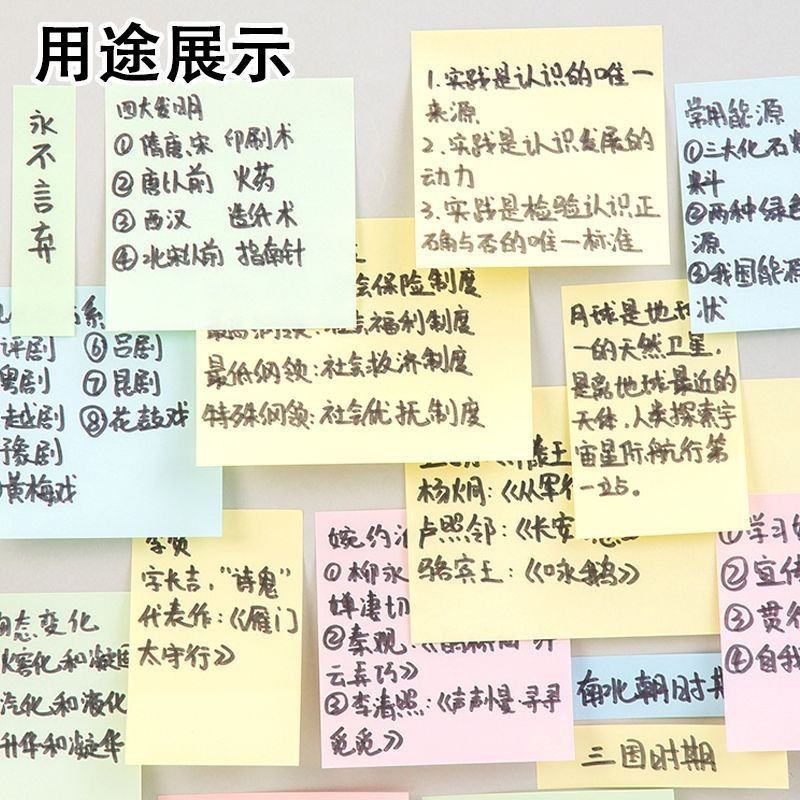 用途展示
永不言弃
四大发明
①隋唐宋 印刷术
②唐以前 火药
③西汉 造纸术
④北宋以前 指南针
1.实践是认识的唯一
来源
2.实践是认识发展的
动力
3.实践是检验认识正
确与否的唯一标准
常用能源
①三大化石燃
料
②两种绿色
源
③我国能源
状
系
评剧
粤剧
越剧
豫剧
黄梅戏
⑥吕剧
⑦昆剧
⑧花鼓戏
会保险制度
最高纲领:社会福利制度
最低纲领:社会救济制度
特殊纲领:社会优抚制度
月球是地球
一的天然卫星,
是离地球最近的
天体,人类探索宇
宙星际航行第
一站。
杨炯:《从军行
卢照邻:《长安
骆宾王:《咏鹅》
李贺
字长吉,“诗鬼”
代表作:《雁门
太守行》
婉约派
①柳永
蝉凄切
②秦观:《鹊桥仙·纤
云弄巧》
③李清照:《声声慢·寻寻
觅觅》
物态变化
熔化和凝固
汽化和液化
升华和凝华
①学习
②宣传
③贯彻
④自我
南北朝时期
三国时期